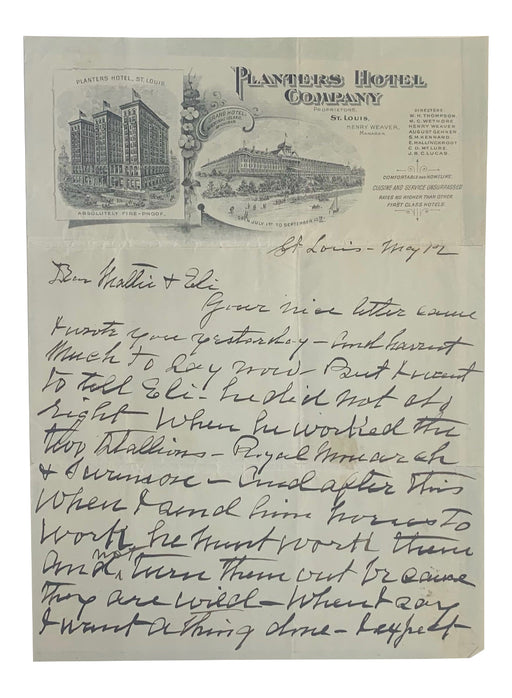 PLANTERS HOTEL, ST. LOUIS
ABSOLUTELY FIRE-PROOF.
GRAND HOTEL
MACKINAC ISLAND,
MICHIGAN
JULY 1ST TO SEPTEMBER
PLANTERS HOTEL
COMPANY
PROPRIETORS,
ST. LOUIS.
HENRY WEAVER,
MANAGER.
DIRECTORS
W. H. THOMPSON.
W. C. WETMORE
HENRY WEAVER
AUGUST GEHNER
S. M. KENNARD.
E. MALLINCKRODT
C. D. McLURE.
J. R. C. LUCAS.
COMFORTABLE AND HOMELIKE.
CUISINE AND SERVICE UNSURPASSED
RATES NO HIGHER THAN OTHER
FIRST CLASS HOTELS.
St Louis - May 12
Dear Mattie & Eli
Your nice letter came
I wrote you yesterday - and havent
Much to say now - But I want
to tell Eli - he did not do
right when he worked the
two Stallions - Royal Monarch
& - and after this
When I send him horses to
Work he must work them
and not turn them out because
they are wild - When I say
I want a thing done - I expect